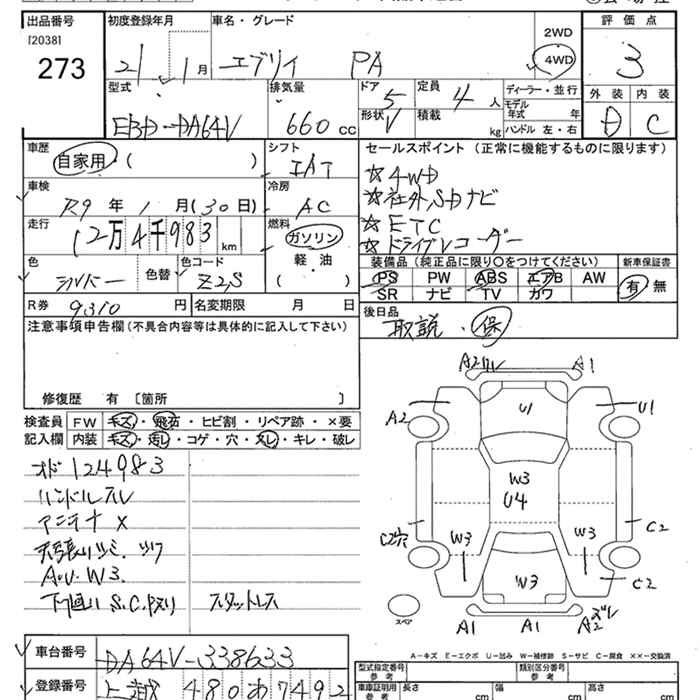 出品番号 初度登録年月 車名・グレード 2WD 評価点
[2038]
273 21 1月 エブリイ PA 4WD 3
型式 排気量 ドア 定員 ディーラー・並行 外装 内装
5 4人 モデル年式 年
EBD-DA64V 660cc 形状 V 積載 kg ハンドル 左・右 D C
車歴 シフト セールスポイント (正常に機能するものに限ります)
自家用・( ) IAT ☆4WD
車検 冷房 ☆社外SDナビ
R9年1月(30日) AC ☆ETC
走行 燃料 ☆ドライブレコーダー
12万4千983km ガソリン
軽・油 装備品 (純正品に限り○をつけてください) 新車保証書
色 色替 色コード ( ) PS PW ABS エアB AW 有 無
シルバー Z2S SR ナビ TV カワ
R券 9310円 名変期限 月 日 後日品
注意事項申告欄(不具合内容等は具体的に記入して下さい) 取説・保
修復歴 有 〔箇所 〕
検査員 FW キズ・飛石・ヒビ割・リペア跡・×要
記入欄 内装 キズ・汚レ・コゲ・穴・スレ・キレ・破レ
オド124983
ハンドルスレ
アンテナ X
天張リシミ
A.U.W3.
下廻リS.C.P
スタットレス
A1
A2 U1 U1
W3
U4
C2穴 W3 W3 C2
W3 C2
スペア A1 A1 A2
A-キズ E-エクボ U-凹み W-補修跡 S-サビ C-腐食 XX-交換済
車台番号 DA64V-338633 型式指定番号 参考 類別区分番号 参考
登録番号 480あ7492 車庫証明用 参考 長さ cm 幅 cm 高さ cm